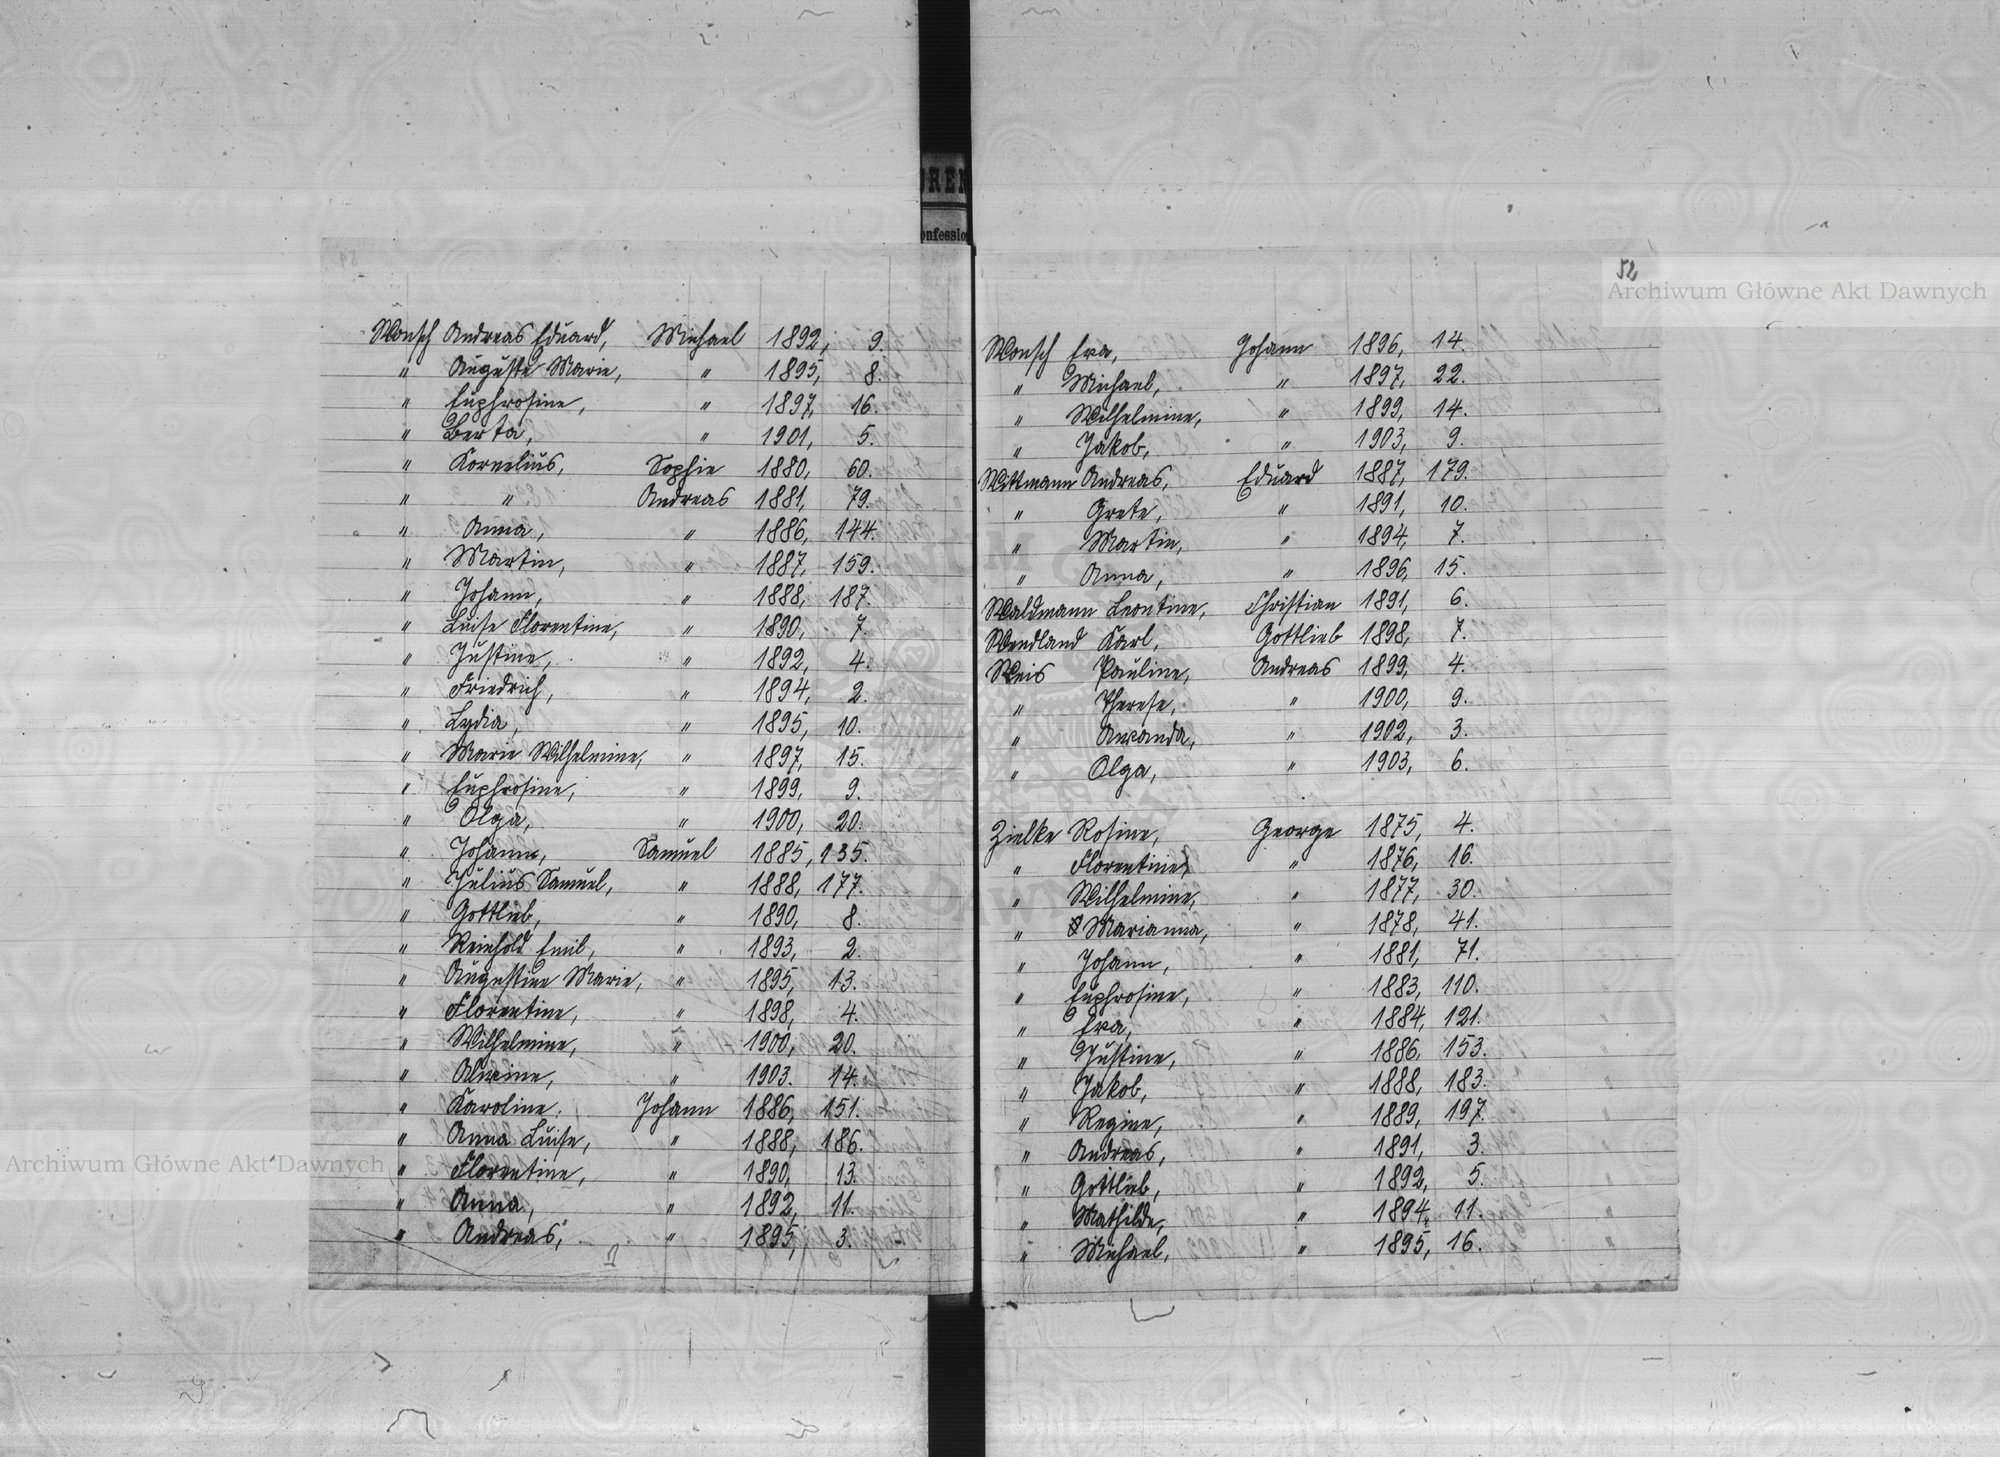 OREN
onfessio
Wonsch Andreas Eduard, Michael 1892, 9.
" Auguste Marie, " 1895, 8.
" Euphrosine, " 1897, 16.
" Berta, " 1901, 5.
" Kornelius, Sophie 1880, 60.
" " Andreas 1881, 79.
" Anna, " 1886, 144.
" Martin, " 1887, 159.
" Johann, " 1888, 187.
" Luise Florentine, " 1890, 7.
" Justine, " 1892, 4.
" Friedrich, " 1894, 2.
" Lydia, " 1895, 10.
" Marie Wilhelmine, " 1897, 15.
" Euphrosine, " 1899, 9.
" Olga, " 1900, 20.
" Johann, Samuel 1885, 135.
" Julius Samuel, " 1888, 177.
" Gottlieb, " 1890, 8.
" Reinhold Emil, " 1893, 2.
" Augustine Marie, " 1895, 13.
" Florentine, " 1898, 4.
" Wilhelmine, " 1900, 20.
" Alwine, " 1903. 14.
" Karoline, Johann 1886, 151.
" Anna Luise, " 1888, 186.
" Florentine, " 1890, 13.
" Anna, " 1892, 11.
" Andreas, " 1895, 3.
52
Wonsch Eva, Johann 1896, 14.
" Michael, " 1897, 22.
" Wilhelmine, " 1899, 14.
" Jakob, " 1903, 9.
Wittmann Andreas, Eduard 1887, 179.
" Grete, " 1891, 10.
" Martin, " 1894, 7.
" Anna, " 1896, 15.
Waldmann Leontine, Christian 1891, 6.
Wendland Karl, Gottlieb 1898, 7.
Weis Pauline, Andreas 1899, 4.
" Therese, " 1900, 9.
" Amanda, " 1902, 3.
" Olga, " 1903, 6.
Zielke Rosine, George 1875, 4.
" Florentine, " 1876, 16.
" Wilhelmine, " 1877, 30.
" Marianna, " 1878, 41.
" Johann, " 1881, 71.
" Euphrosine, " 1883, 110.
" Eva, " 1884, 121.
" Justine, " 1886, 153.
" Jakob, " 1888, 183.
" Regine, " 1889, 197.
" Andreas, " 1891, 3.
" Gottlieb, " 1892, 5.
" Mathilde, " 1894, 11.
" Michael, " 1895, 16.
Archiwum Główne Akt Dawnych
Archiwum Główne Akt Dawnych